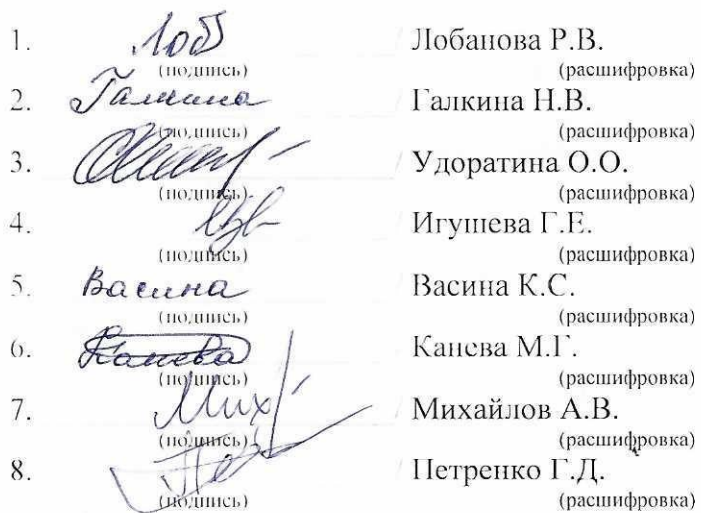 1. Лоб / Лобанова Р.В.
(подпись) (расшифровка)
2. Галкина / Галкина Н.В.
(подпись) (расшифровка)
3. / Удоратина О.О.
(подпись) (расшифровка)
4. / Игушева Г.Е.
(подпись) (расшифровка)
5. Васина Васина К.С.
(подпись) (расшифровка)
6. Канева Канева М.Г.
(подпись) (расшифровка)
7. Мих / Михайлов А.В.
(подпись) (расшифровка)
8. Петренко Г.Д.
(подпись) (расшифровка)